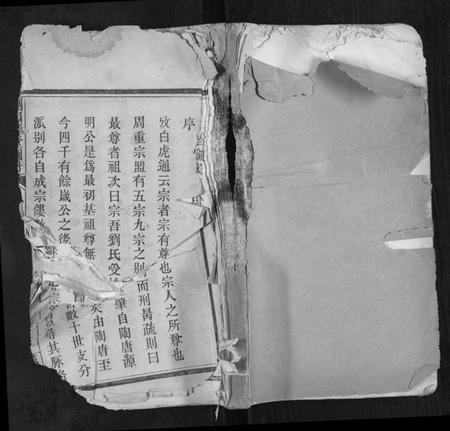 序
攷白虎通云宗者宗有尊也宗人之所尊也
周重宗盟有五宗九宗之别而刑昺疏則曰
最尊者祖次曰宗吾劉氏受 肇自陶唐源
明公是爲最初基祖尊無 矣由陶唐至
今四千有餘歲公之後 數十世支分
派别各自成宗 宗 尊其